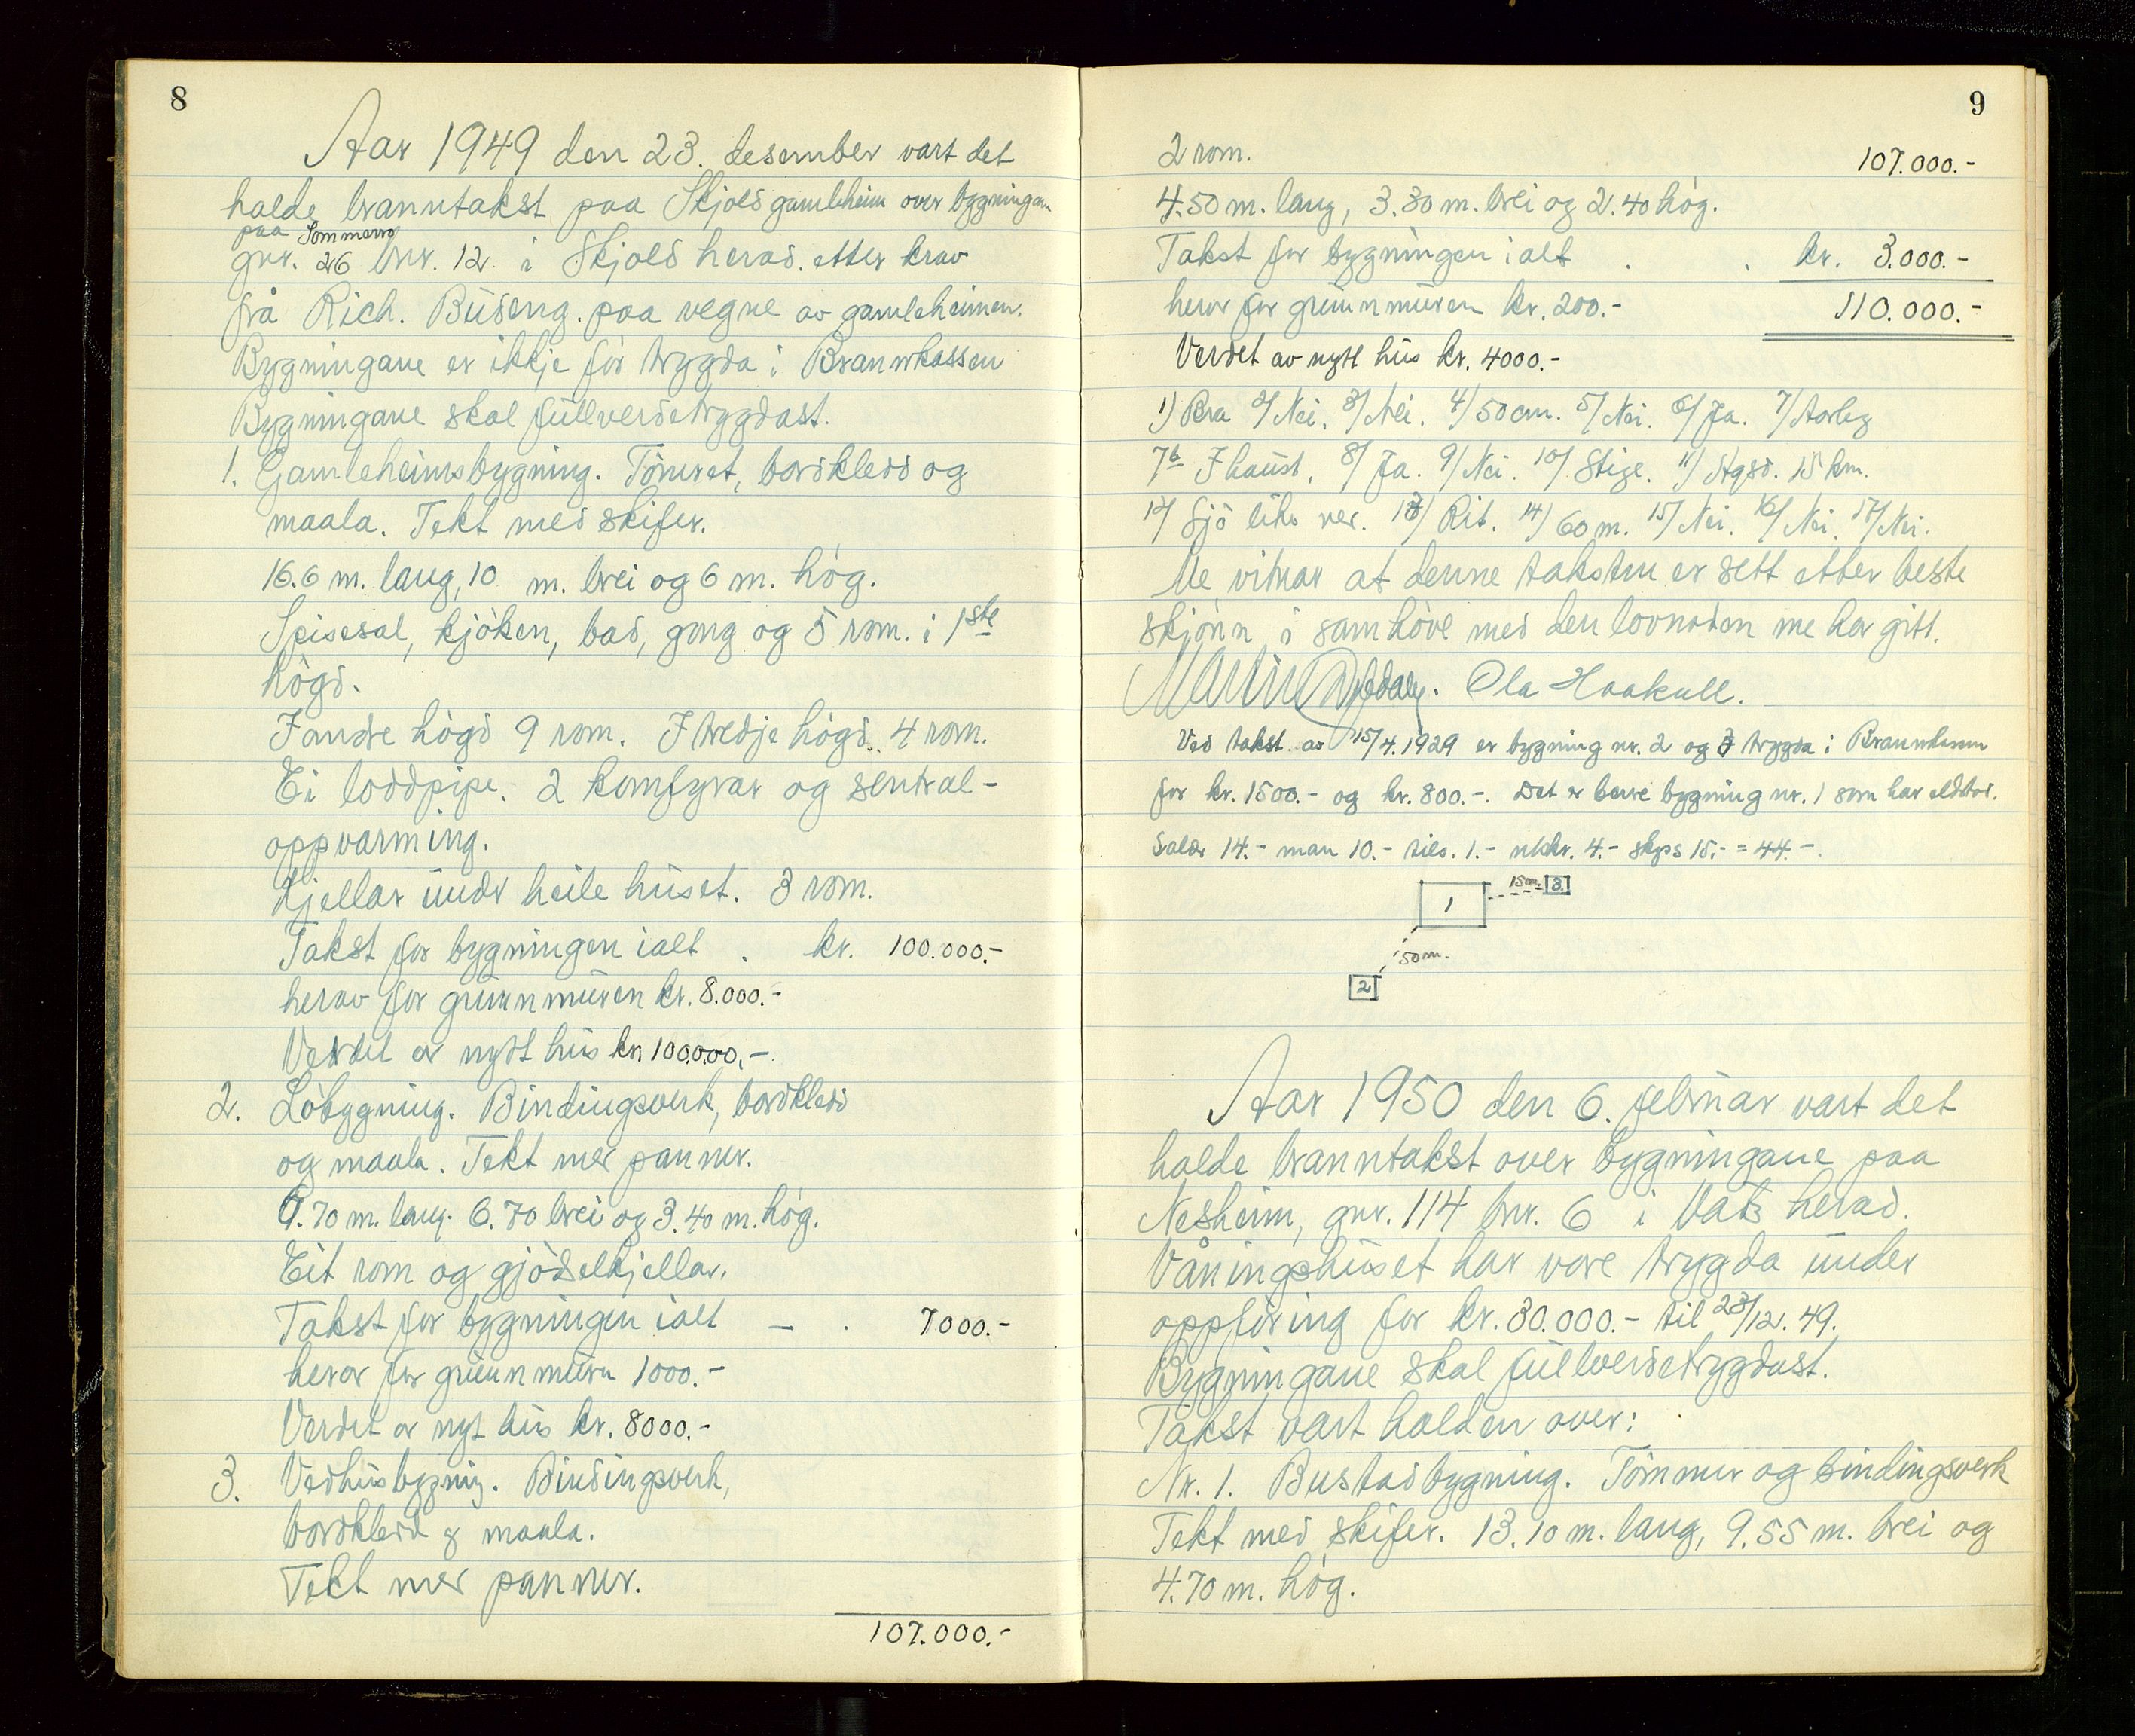 8
Aar 1949 den 23. desember vart det
halde branntakst paa Skjold gamleheim over bygningane
paa Sommerro
gnr. 26 bnr. 12 i Skjold herad. etter krav
frå Rich. Buseng. paa vegne av gamleheimen.
Bygningane er ikkje för trygda i Brannkassen
Bygningane skal fullverdetryggdast.
1. Gamleheimsbygning. Tömret, bordkledd og
maala. Tekt med skifer.
16.6 m. laug, 10 m. brei og 6 m. høg.
Spisesal, kjöken, bad, gang og 5 rom. i 1ste
högd.
I andre högd 9 rom. I tredje högd. 4 rom.
Ei loddpipe. 2 komfyrar og sentral-
oppvarming.
Kjellar under heile huset. 3 rom.
Takst for bygningen ialt . kr. 100.000.-
herav for grunnmuren kr. 8.000.-
Verdet av nytt hus kr. 100.000,-.
2. Löbygning. Bindingsverk, bordkledd
og maala. Tekt mer panner.
9.70 m. laug. 6.70 brei og 3.40 m. høg.
Eit rom og gjödselkjellar.
Takst for bygningen ialt - . 7000.-
herav for grunnmuren 1000.-
Verdet av nyt hus kr. 8000.-
3. Vedhusbygnig. Bindingsverk,
bordkledd og maala.
Tekt mer panner.
107.000.-
9
2 rom.
107.000.-
4.50 m. laug, 3.30 m. brei og 2.40 høg.
Takst for bygningen ialt . . kr. 3.000.-
herav for grunnmuren kr. 200.- 110.000.-
Verdet av nytt hus kr. 4000.-
1) Bra 2/ Nei. 3/ Nei. 4/ 50 cm. 5/ Nei. 6/ Ja. 7/ Aarleg
7b I haust, 8/ Ja. 9/ Nei. 10/ Stige. 11/ Aysd. 15 km.
12/ Sjö like ver. 13/ Rit. 14/ 60 m. 15/ Nei. 16/ Nei. 17/ Nei.
Me vitnar at denne taksten er sett etter beste
skjönn i samhöve med den lovnaden me har gitt.
Ola Haakull.
Ved takst av 15/4.1929 er bygning nr. 2 og 3 trygda i Brannkassen
for kr. 1500.- og kr. 800.-. Det er berre bygning nr. 1 som har eldstad.
Salær 14.- man 10.- tils. 1.- utskr. 4.- skyss 15.- = 44.-.
15 m. 3
1
50 m.
2
Aar 1950 den 6. februar vart det
halde branntakst over bygningane paa
Nesheim, gnr. 114 bnr. 6 i Vats herad.
Våningshuset har vore trygda under
oppföring for kr. 30.000.- til 23/12. 49.
Bygningane skal fullverdetryggdast.
Takst vart halden over:
Nr. 1. Bustadbygning. Tömmer og bindingsverk
Tekt med skifer. 13.10 m. laug, 9.55 m. brei og
4.70 m. høg.